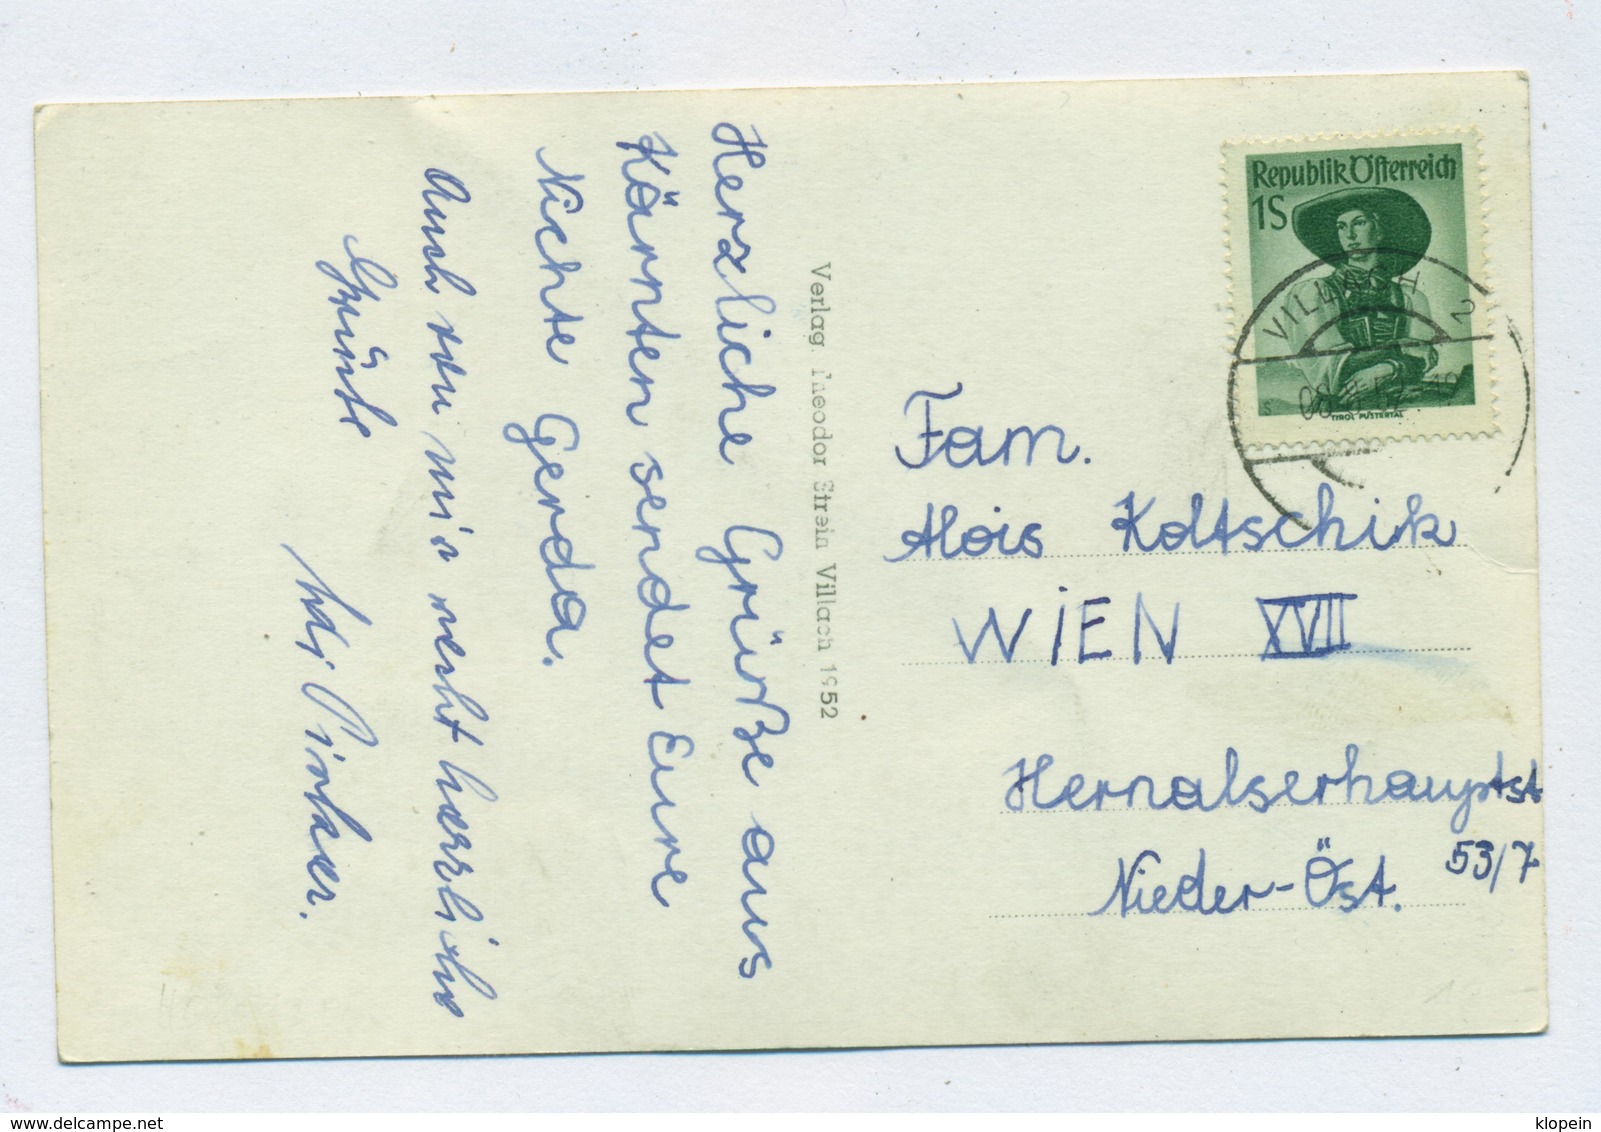 Herzliche Grüße aus
Kärnten sendet Eure
Nichte Gerda.
Auch von mir recht herzliche
Grüße
Verlag Theodor Strein Villach 1952
Republik Österreich
1S
TIROL PUSTERTAL
VILLACH 2
52
Fam.
Alois Koltschik
WIEN XVII
Hernalserhauptst
53/7
Nieder-Öst.
www.delcampe.net
klopein